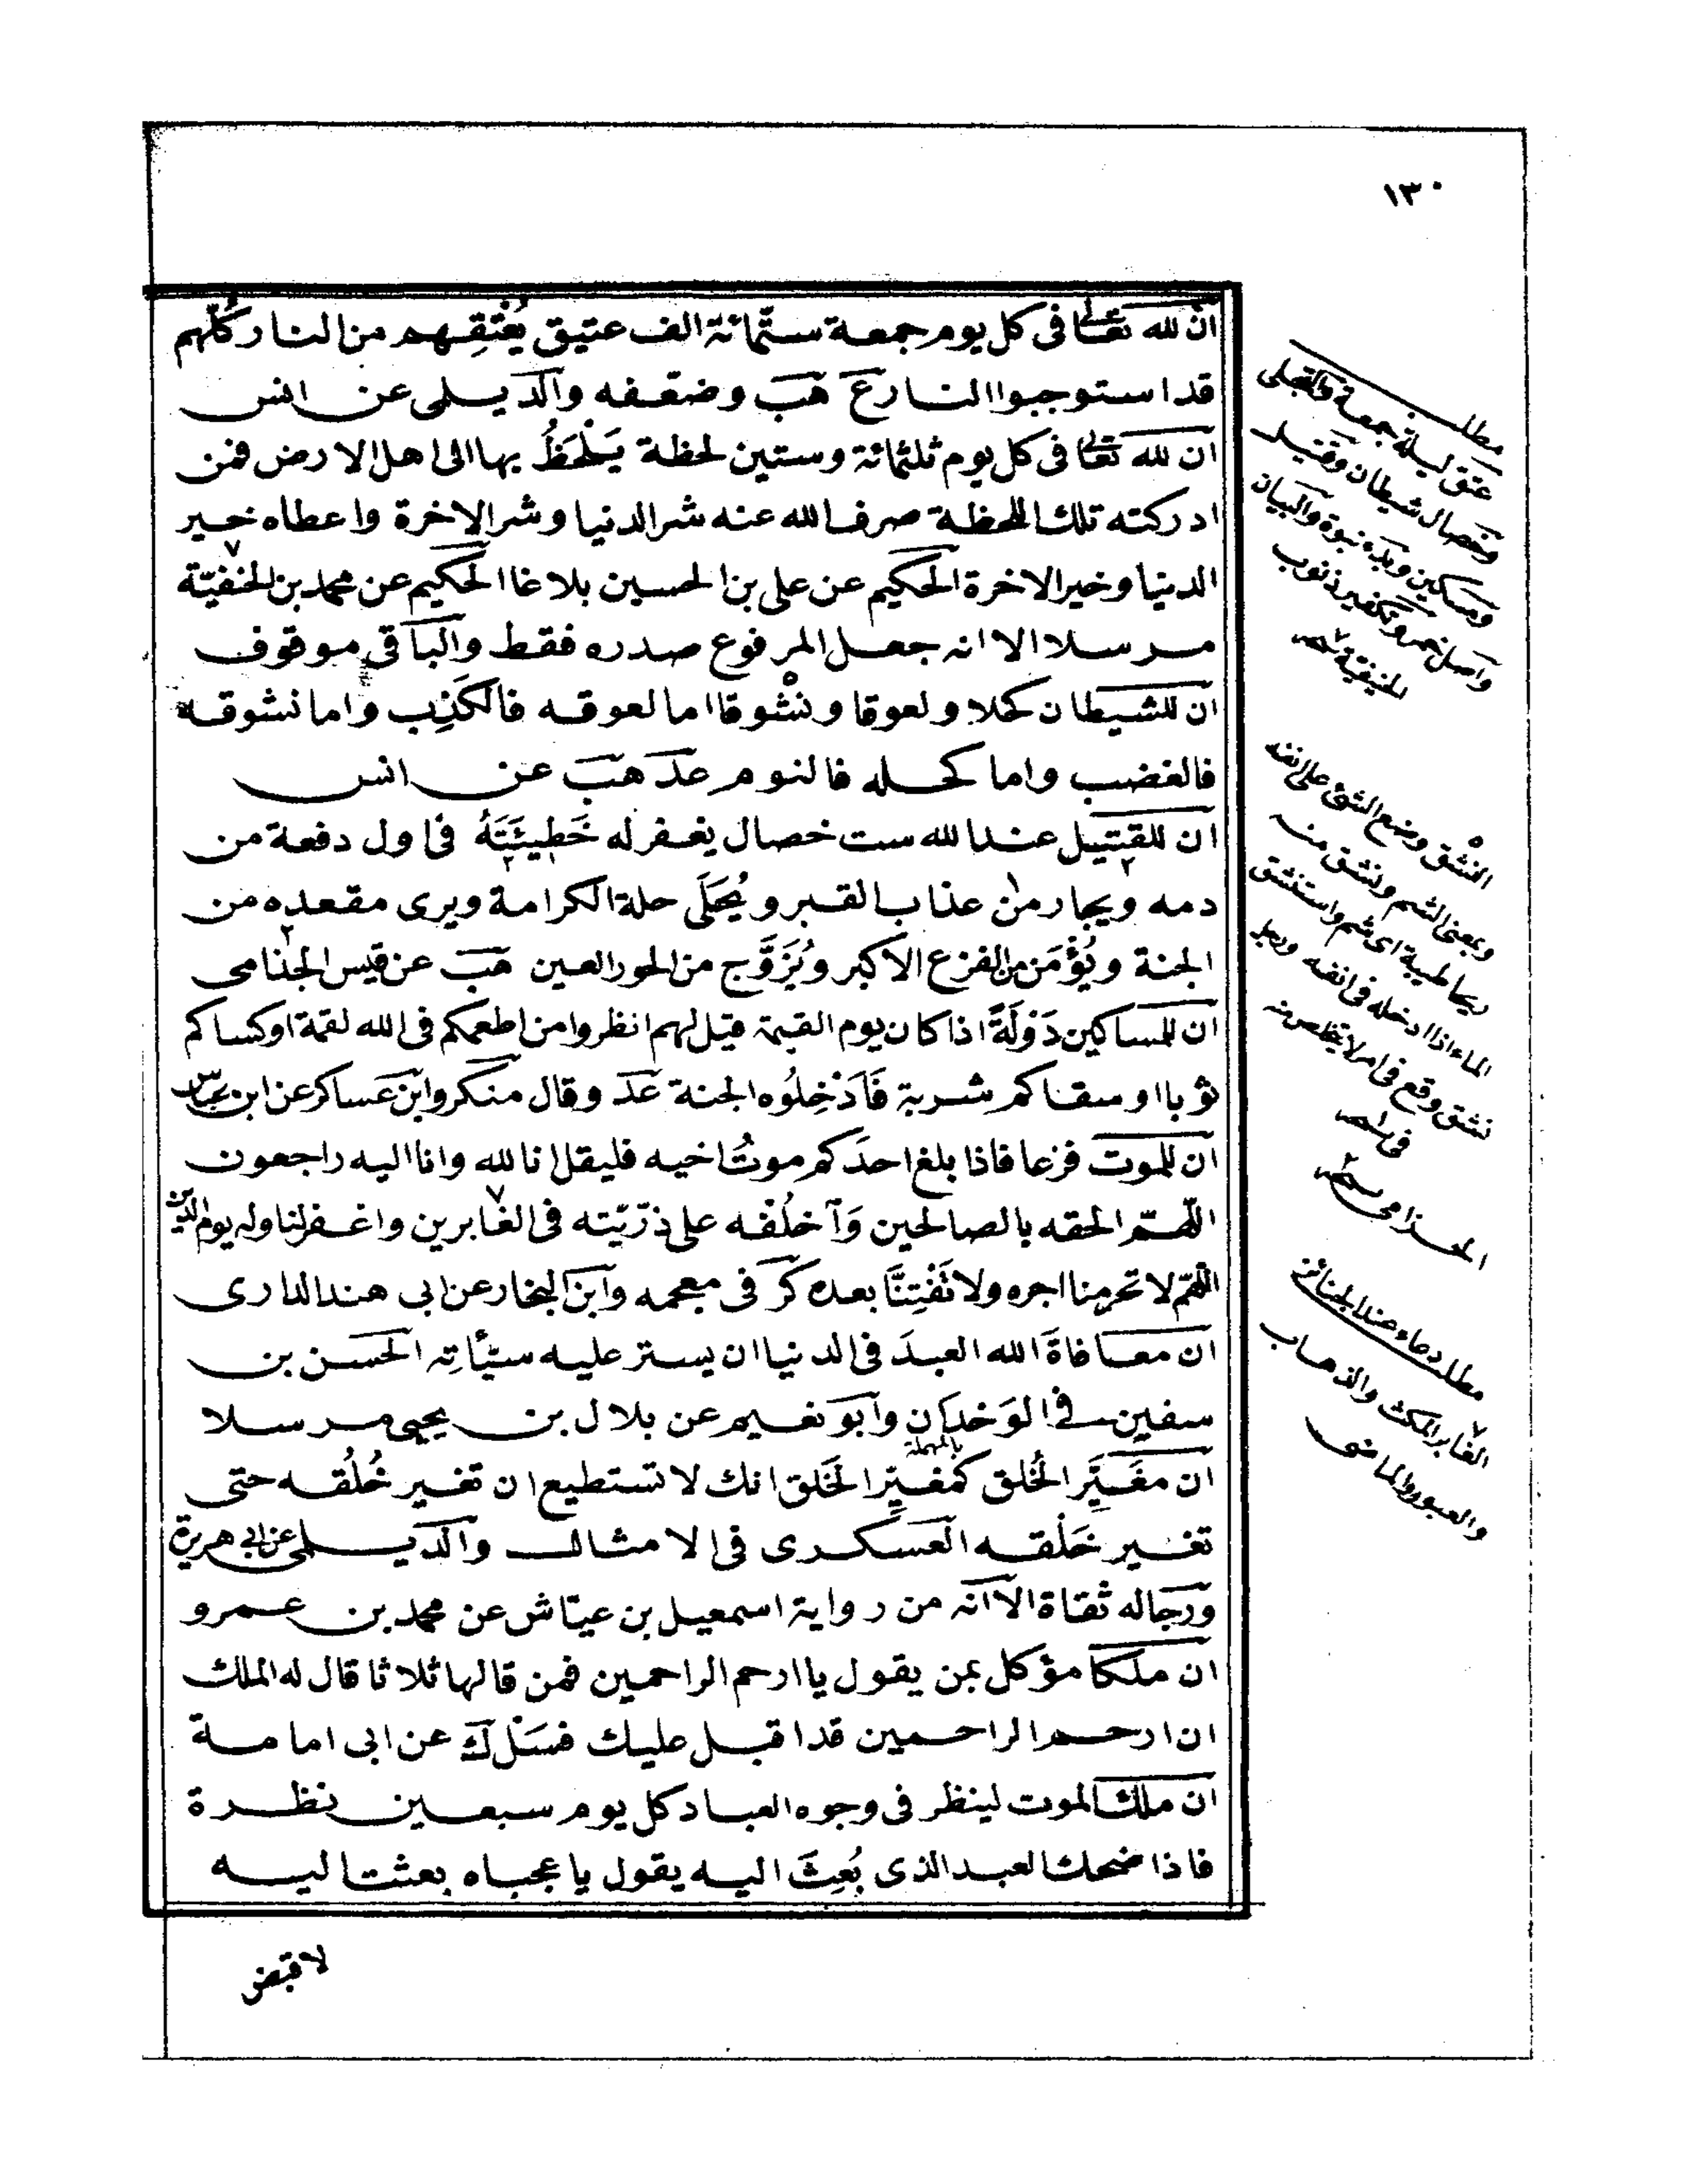 ١٣٠
ان لله تعالى فى كل يوم جمعة ستمائة الف عتيق يُعْتِقُهم من النار كلّهم
قد استوجبوا النار ع هب وضعفه والديلمى عن انس
ان لله تعالى فى كل يوم ثلثمائة وستين لحظة يَلْحَظُ بها الى اهل الارض فمن
ادركته تلك اللحظة صرف الله عنه شر الدنيا وشر الاخرة واعطاه خير
الدنيا وخير الاخرة الحكيم عن على بن الحسين بلاغا الحكيم عن محمد بن الحنفيّة
مرسلا الا انه جعل المرفوع صدره فقط والباقى موقوف
ان للشيطان كحلا ولعوقا ونشوقا اما لعوقه فالكَذِب واما نشوقه
فالغضب واما كحله فالنوم عد هب عن انس
ان للقتيل عند الله ست خصال يغفر له خَطِيئَتَهُ فى اول دفعة من
دمه ويجار من عذاب القبر و يُحَلَّى حلة الكرامة ويرى مقعده من
الجنة ويُؤْمَن من الفزع الاكبر ويُزَوَّج من الحور العين هب عن قيس الجذامى
ان للمساكين دَوْلَةً اذا كان يوم القيمة قيل لهم انظروا من اطعمكم فى الله لقمة او كساكم
ثوبا او سقاكم شربة فَاَدْخِلُوه الجنة عد وقال منكر وابن عساكر عن ابن عبّاس
ان للموت فزعا فاذا بلغ احدَكم موتُ اخيه فليقل انا لله وانا اليه راجعون
اللّهمّ الحقه بالصالحين وَاخلُفْه على ذرّيّته فى الغابرين واغفر لنا وله يوم الدين
اللّهمّ لا تحرمنا اجره ولا تَفْتِنَّا بعده كر فى معجمه وابن النجار عن ابى هند الدارى
ان معافاةَ الله العبدَ فى الدنيا ان يستر عليه سيّأتِه الحسن بن
سفين فى الوَحْدَان وابو نعيم عن بلال بن يحيى مرسلا
بالمهملة
ان مغَيِّرَ الخُلق كمغيِّر الخَلق انك لا تستطيع ان تغير خُلُقه حتى
تغير خَلْقه العسكرى فى الامثال والديلمى عن ابى هريرة
ورجاله ثقاة الا انّه من رواية اسمعيل بن عيّاش عن محمد بن عمرو
ان ملكا مؤكل بمن يقول يا ارحم الراحمين فمن قالها ثلاثا قال له الملك
ان ارحم الراحمين قد اقبل عليك فسَلْ ك عن ابى امامة
ان ملك الموت لينظر فى وجوه العباد كل يوم سبعين نظرة
فاذا ضحك العبد الذى بُعِثَ اليه يقول يا عجباه بعثت اليه
لاقبض
مطلب
عتق ليلة جمعة والتجلى
وخصال شيطان وقتيل
ومسكين وبدء نبوة والبيان
واصل خمر وتكفير ذنوب
للحنيفية
النشق وضع الشئ على انفه
وبمعنى الشم ونشق منه
ريحا طيبة اى شم واستنشق
الماء اذا ادخله فى انفه ورجل
نشق وقع فى امر لا يتخلص منه
الحذامى
مطلب دعاء عند الجنائز
الغابر المكث والذهاب
والعبور والماضى